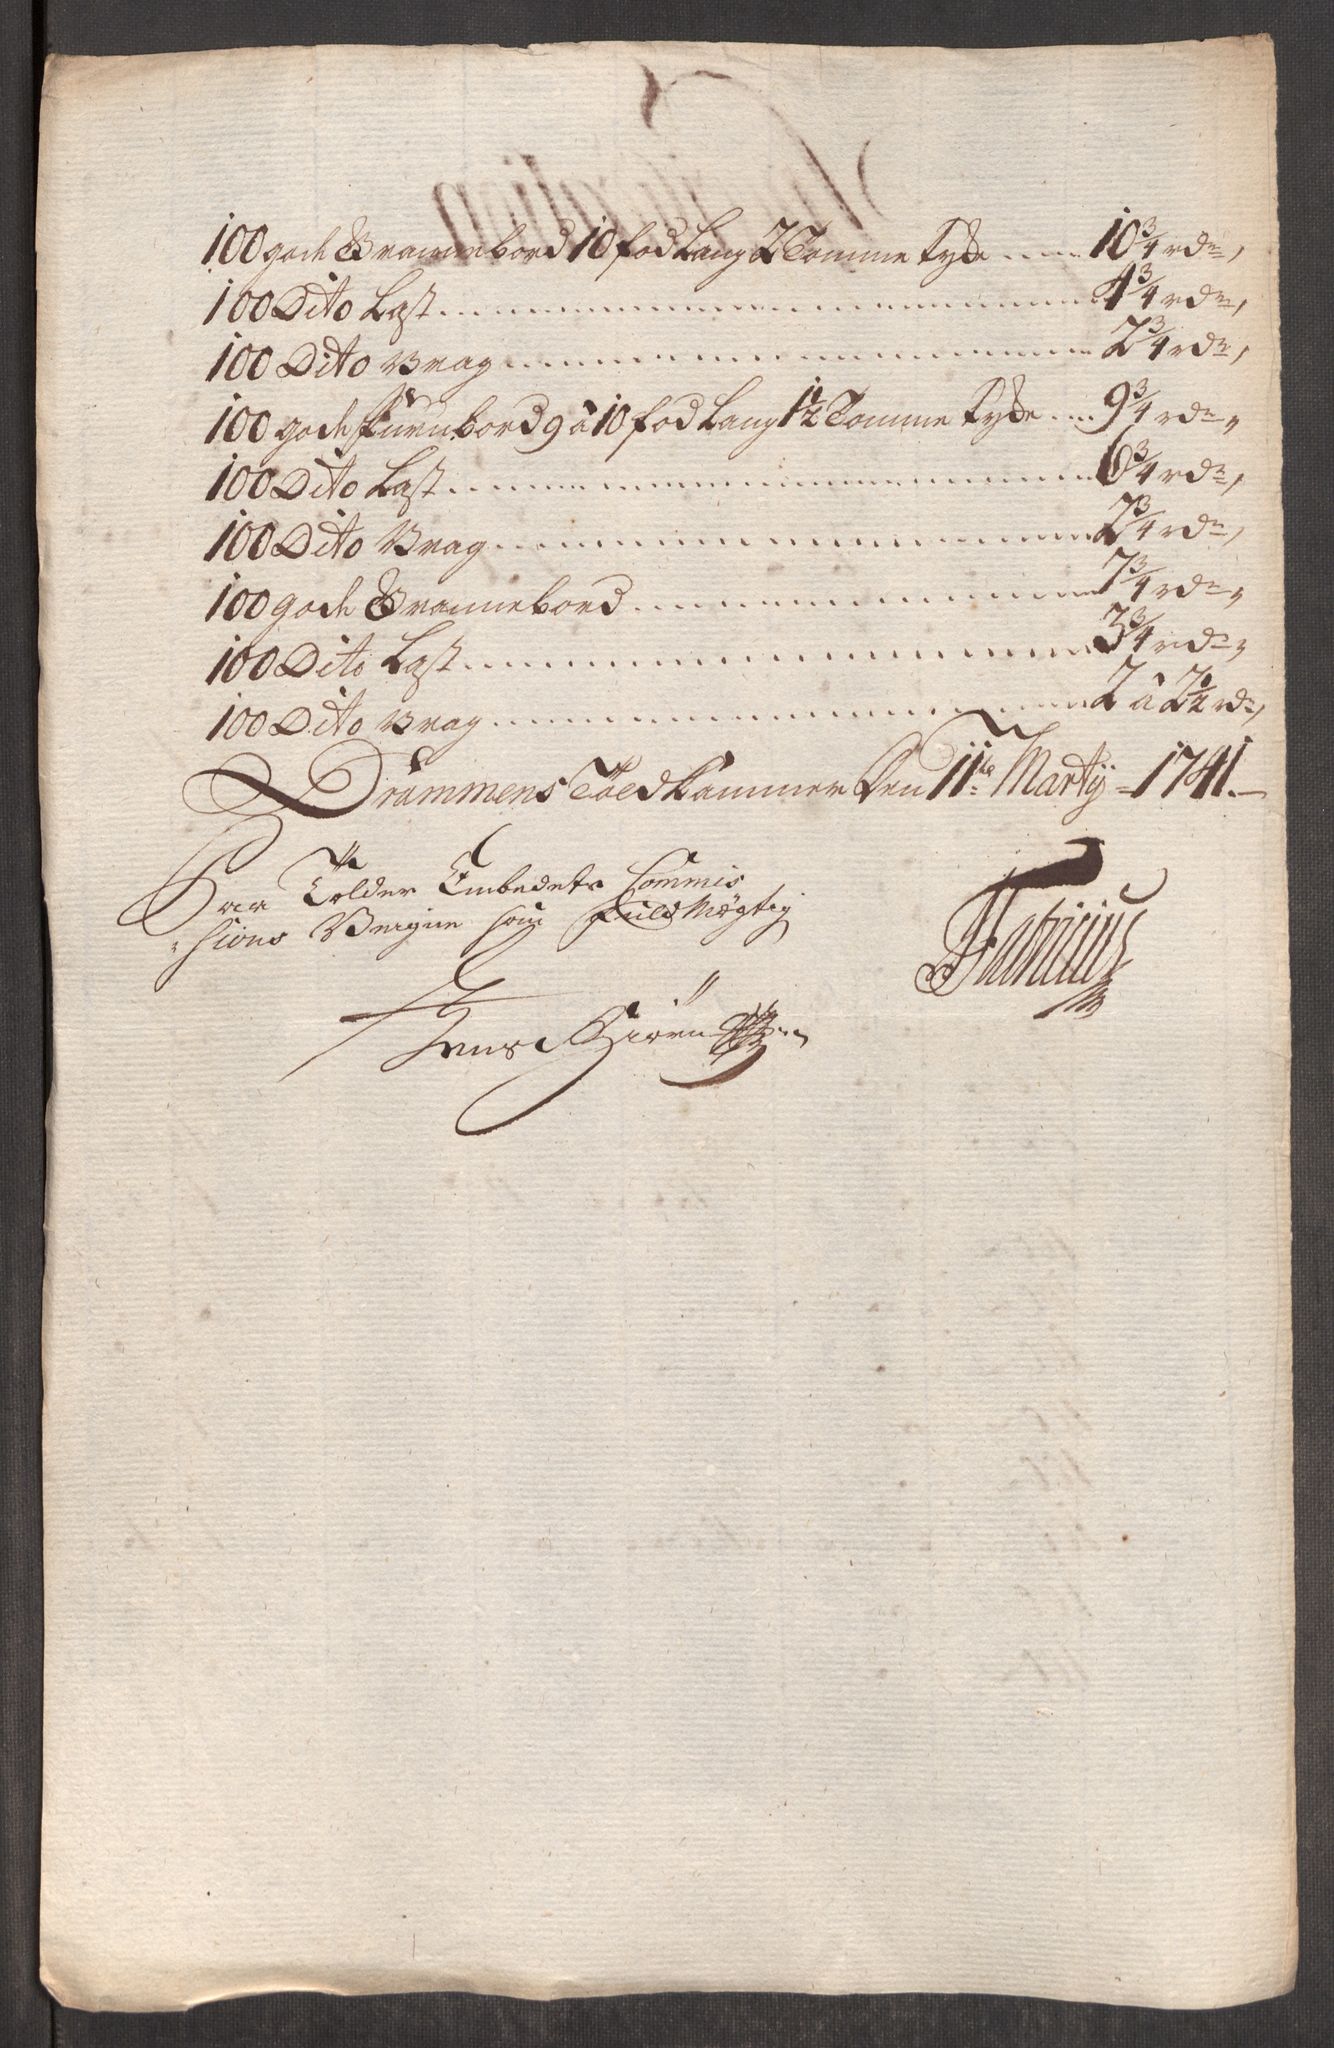 100 gode Grannebord 10 fod Lang 2 Tomme tyke ..... 10 3/4 rdr,
100 Dito Last ..... 4 3/4 rdr,
100 Dito Vrag ..... 2 3/4 rdr,
100 gode furubord 9 à 10 fod Lang 1 1/2 Tomme tyke .... 9 3/4 rdr,
100 Dito Last ..... 6 3/4 rdr,
100 Dito Vrag ..... 2 3/4 rdr,
100 gode Grannebord ..... 7 3/4 rdr,
100 Dito Last ..... 3 3/4 rdr,
100 Dito Vrag ..... 2 à 2 1/2 rdr,
Drammens Toldkammer den 11te Martij 1741.
Paa Tolder Embedets Commis
sions Vegne som Fuldmægtig
Jens Biørn